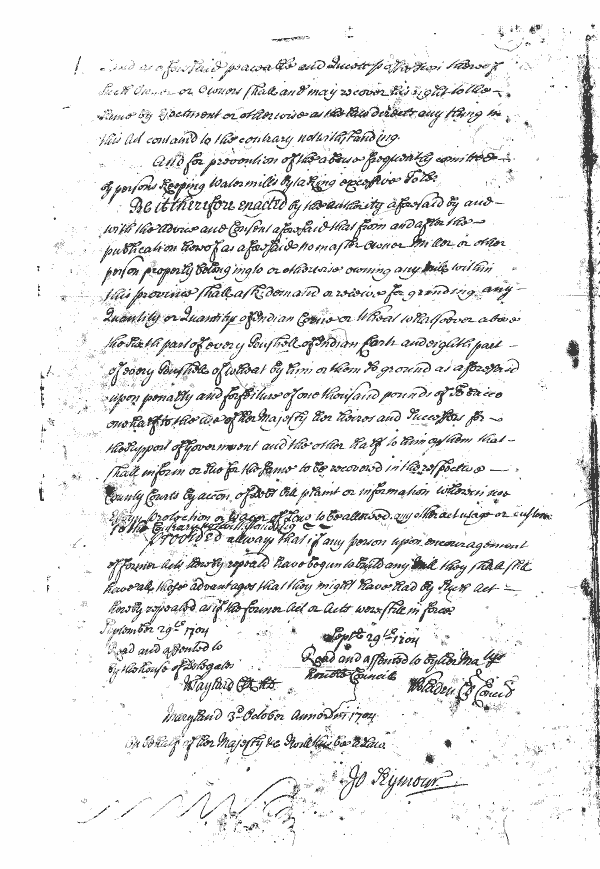 Land as aforesaid peaceable and Quiett possession thereof
Such Owner or Owners shall and may recover his right to the
same by Ejectment or otherwise as the Law directs any thing in
this Act containd to the contrary notwithstanding.
And for prevention of the abuse frequently comitted
by persons keeping Watermills by taking excessive Tolle
Be it therefore enacted by the authority aforesaid by and
with the advice and Consent aforesaid that from and after the
publication hereof as aforesaid no master Owner Miller or other
person properly belonging to or otherwise owning any Mill within
this province shall ask demand or receive for grinding any
Quantity or Quantitys of Indian Corne or Wheat whatsoever above
the sixth part of every Bushell of Indian Corn and eighth part
of every Bushell of wheat by him or them so ground as aforesaid
upon penalty and forfeiture of one thousand pounds of Tobacco
one half to the use of her Majesty her heires and Successors for
the support of Government and the other half to him or them that
shall inform or sue for the same to be recovered in the respective
County Courts by accon of Debt Bill plaint or information wherein noe
Essoin protection or Wager of Law to be allowed any other act usage or custom
to the Contrary Notwithstanding
Provided allways that if any person upon encouragement
of former Acts hereby repeald have begun to build any Mill they shall still
have all those advantages that they might have had by such Act
hereby repealed as if the former Act or Acts were still in force
September 29th 1704
Read and assented to
by the house of Delegates
W Taylard Cl h d
Septbr 29th 1704
Read and assented to by her Matys
Honble Councill
W Bladen Cl Concil
Maryland 3d October Anno Dni 1704
On behalf of her Majesty &c I will this be a Law
Jo Seymour